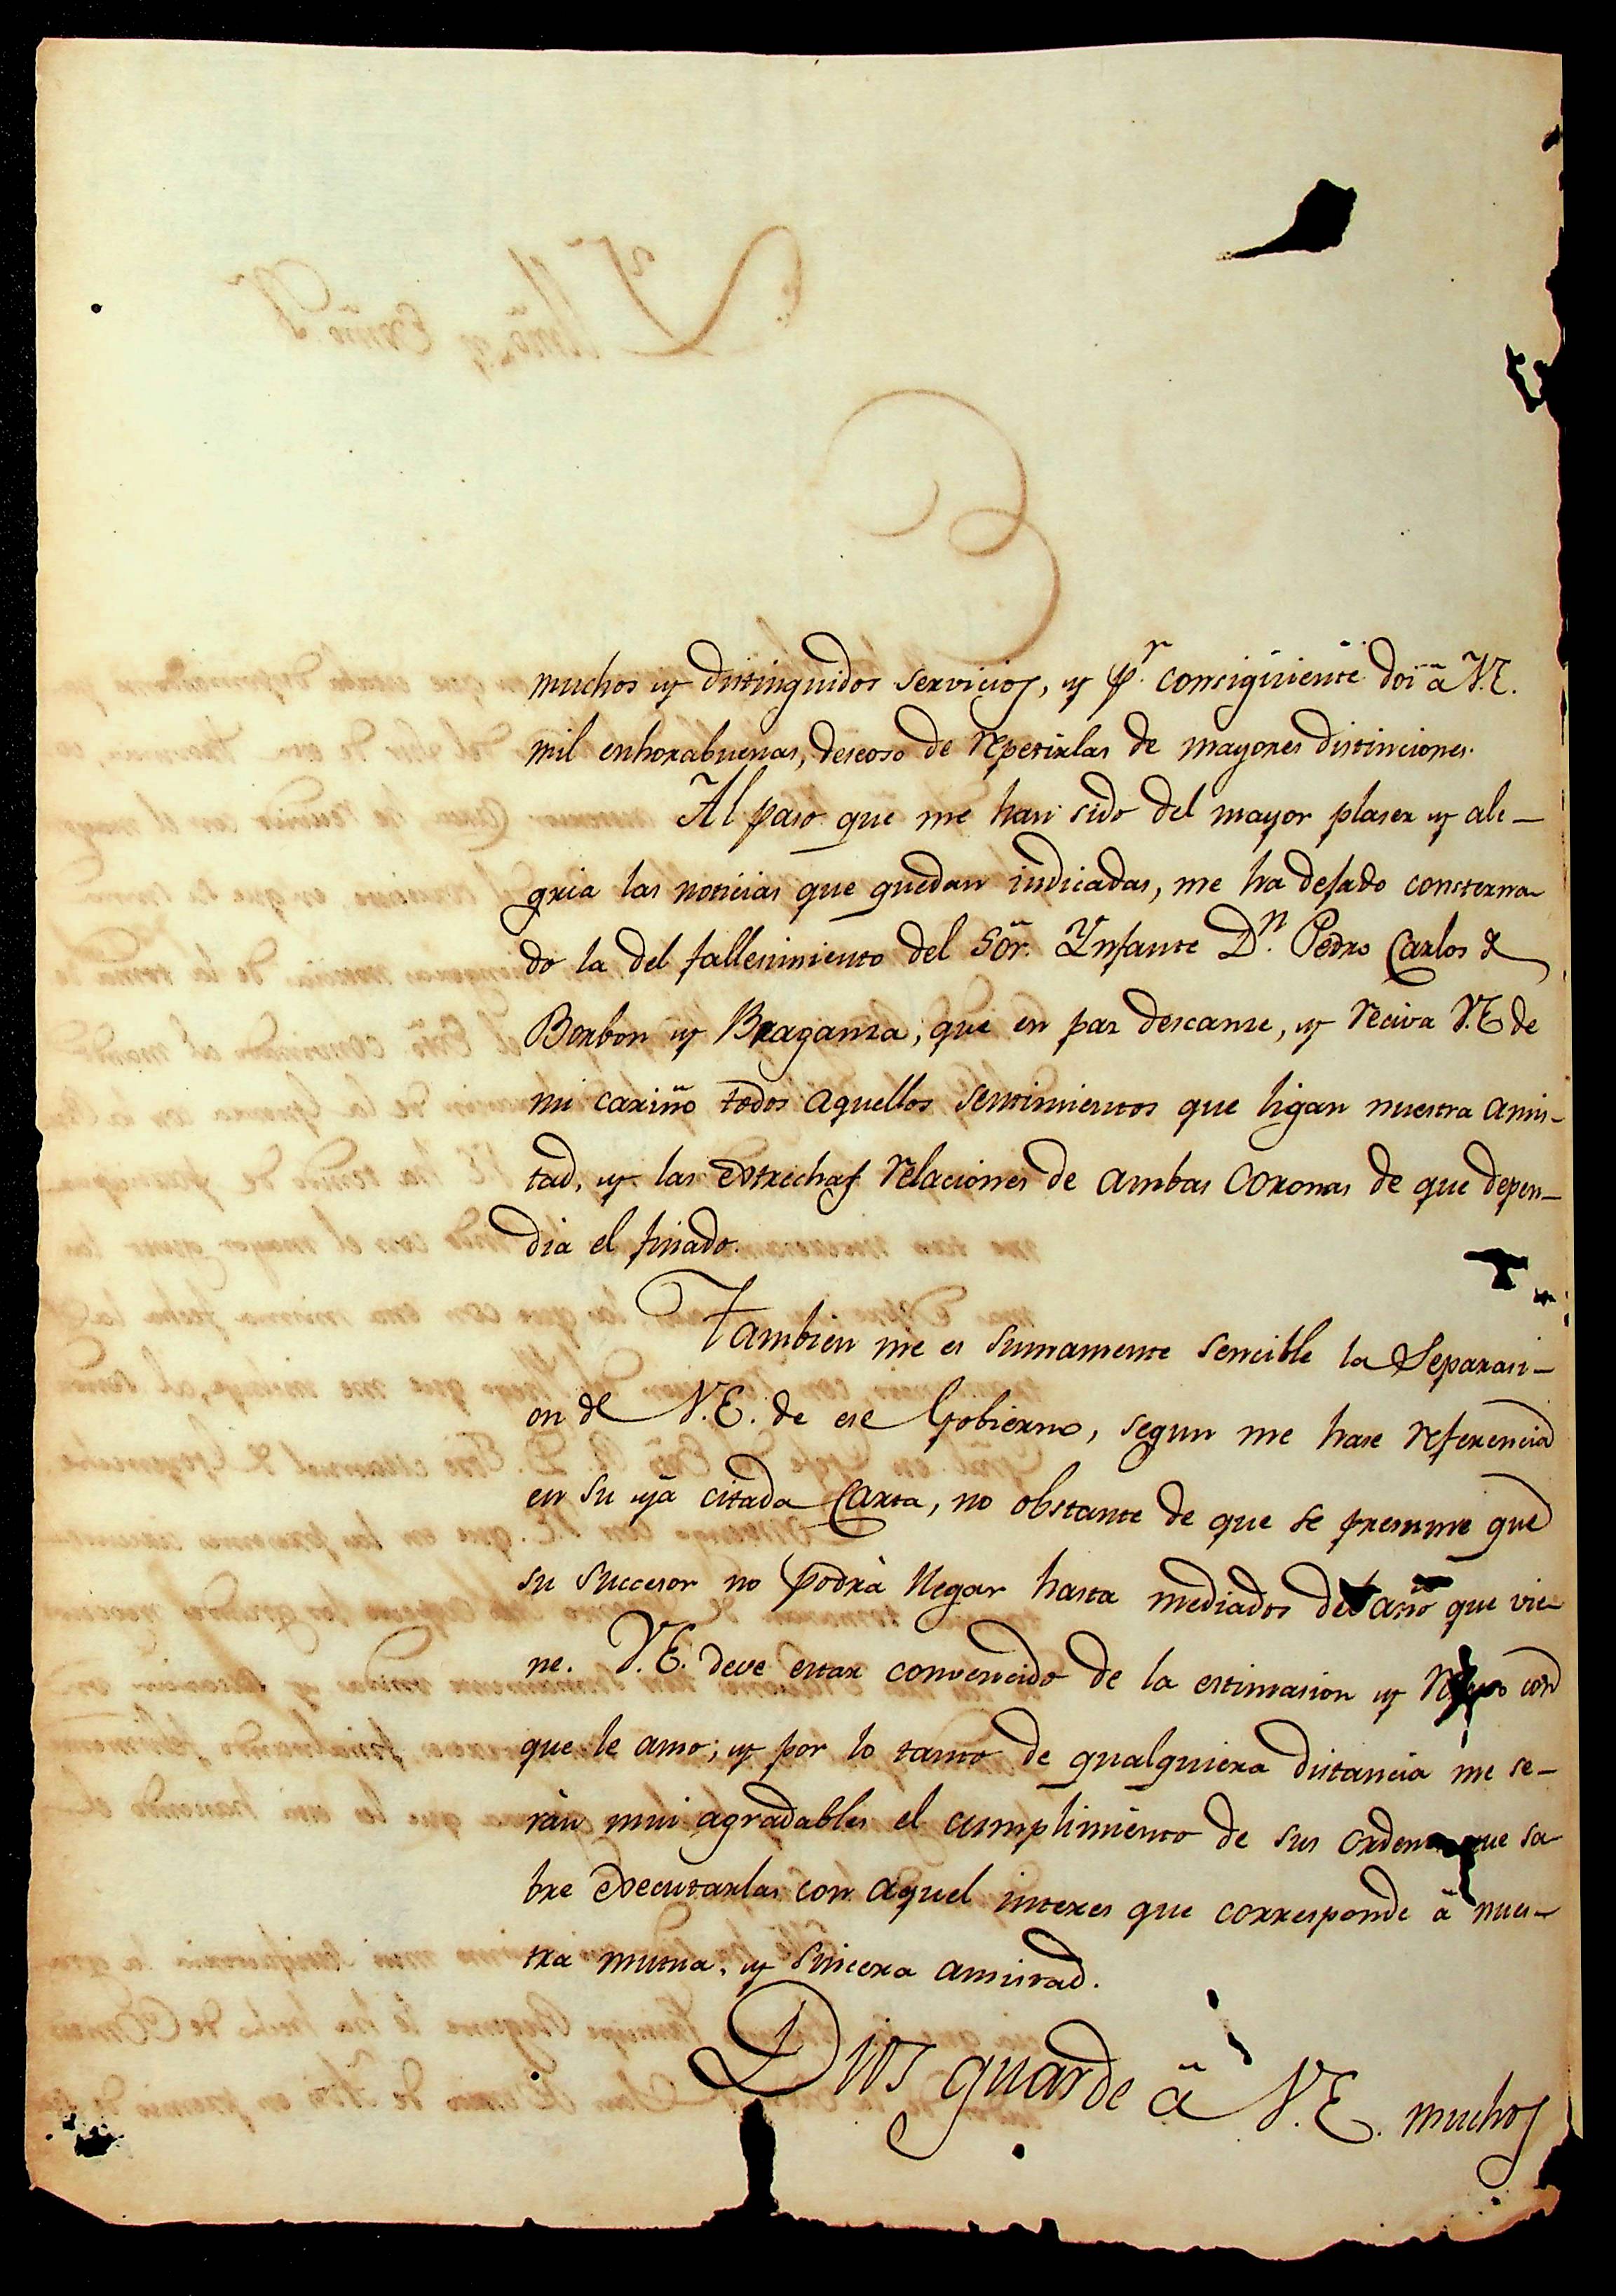 muchos y distinguidos servicios, y p.r consiguiente doi â V.E.
mil enhorabuenas, deseoso de repetirlas de mayores distinciones.
Al paso que me han sido del mayor plaser y ale-
gria las noticias que quedan indicadas, me ha dejado consterna-
do la del fallecimiento del Sõr. Ynfante D.n Pedro Carlos de
Borbon y Braganza, que en paz descanse, y reciva V.E. de
mi cariño todos aquellos sentimientos que ligan nuestra amis-
tad, y las extrechas relaciones de ambas coronas de que depen-
dia el finado.
Tambien me es sumamente sencible la Separasi-
on de V.E. de ese Gobierno, segun me hase referencia
en su yâ citada Carta, no obstante de que se presume que
su succesor no podrà llegar hasta mediados del año que vie-
ne. V.E. deve estar convencido de la estimasion y con
que le amo; y por lo tanto de qualquiera distancia me se-
ràn mui agradables el cumplimiento de sus ordenes que sa-
bre executarlas con aquel interes que corresponde â nues-
tra mutua, y sincera amistad.
Dios guarde â V.E. muchos